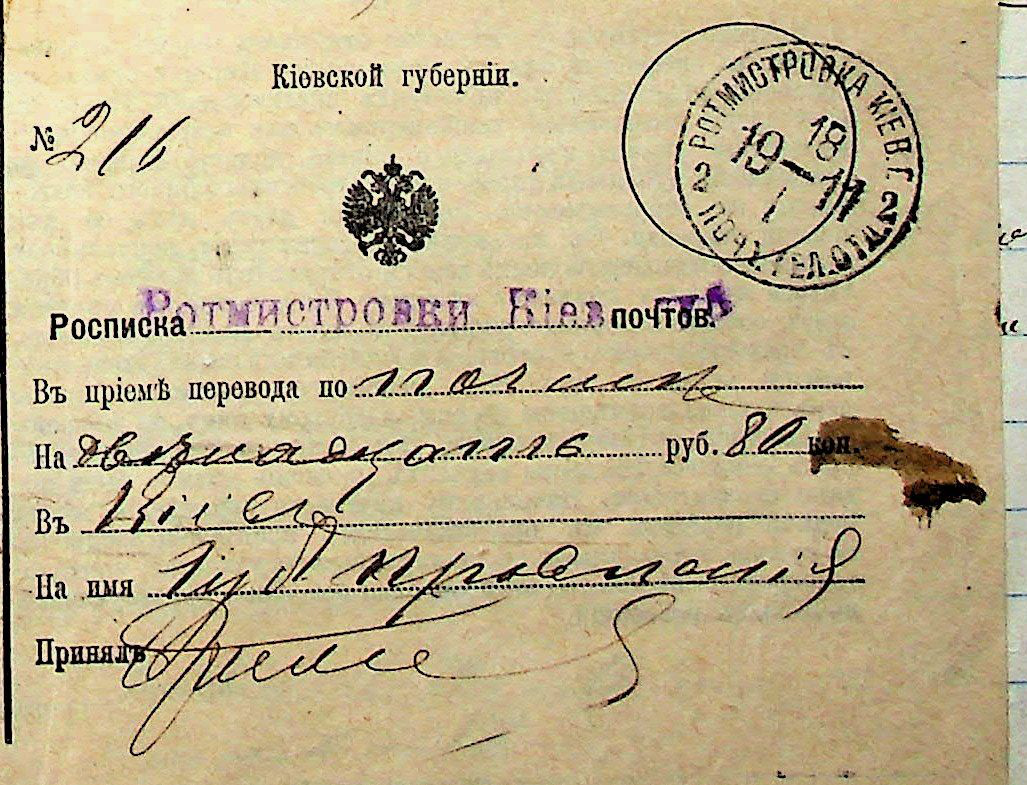 Кіевской губерніи.
№ 216
РОТМИСТРОВКА КІЕВ. Г.
18
19–11
I
2 ПОЧТ. ТЕЛ. ОТД. 2
Росписка Ротмистровки Кіев почтов.
Въ пріемѣ перевода по почтѣ
На двѣнадцать руб. 80 коп.
Въ Кіевъ
На имя Губ Правленія
Принялъ